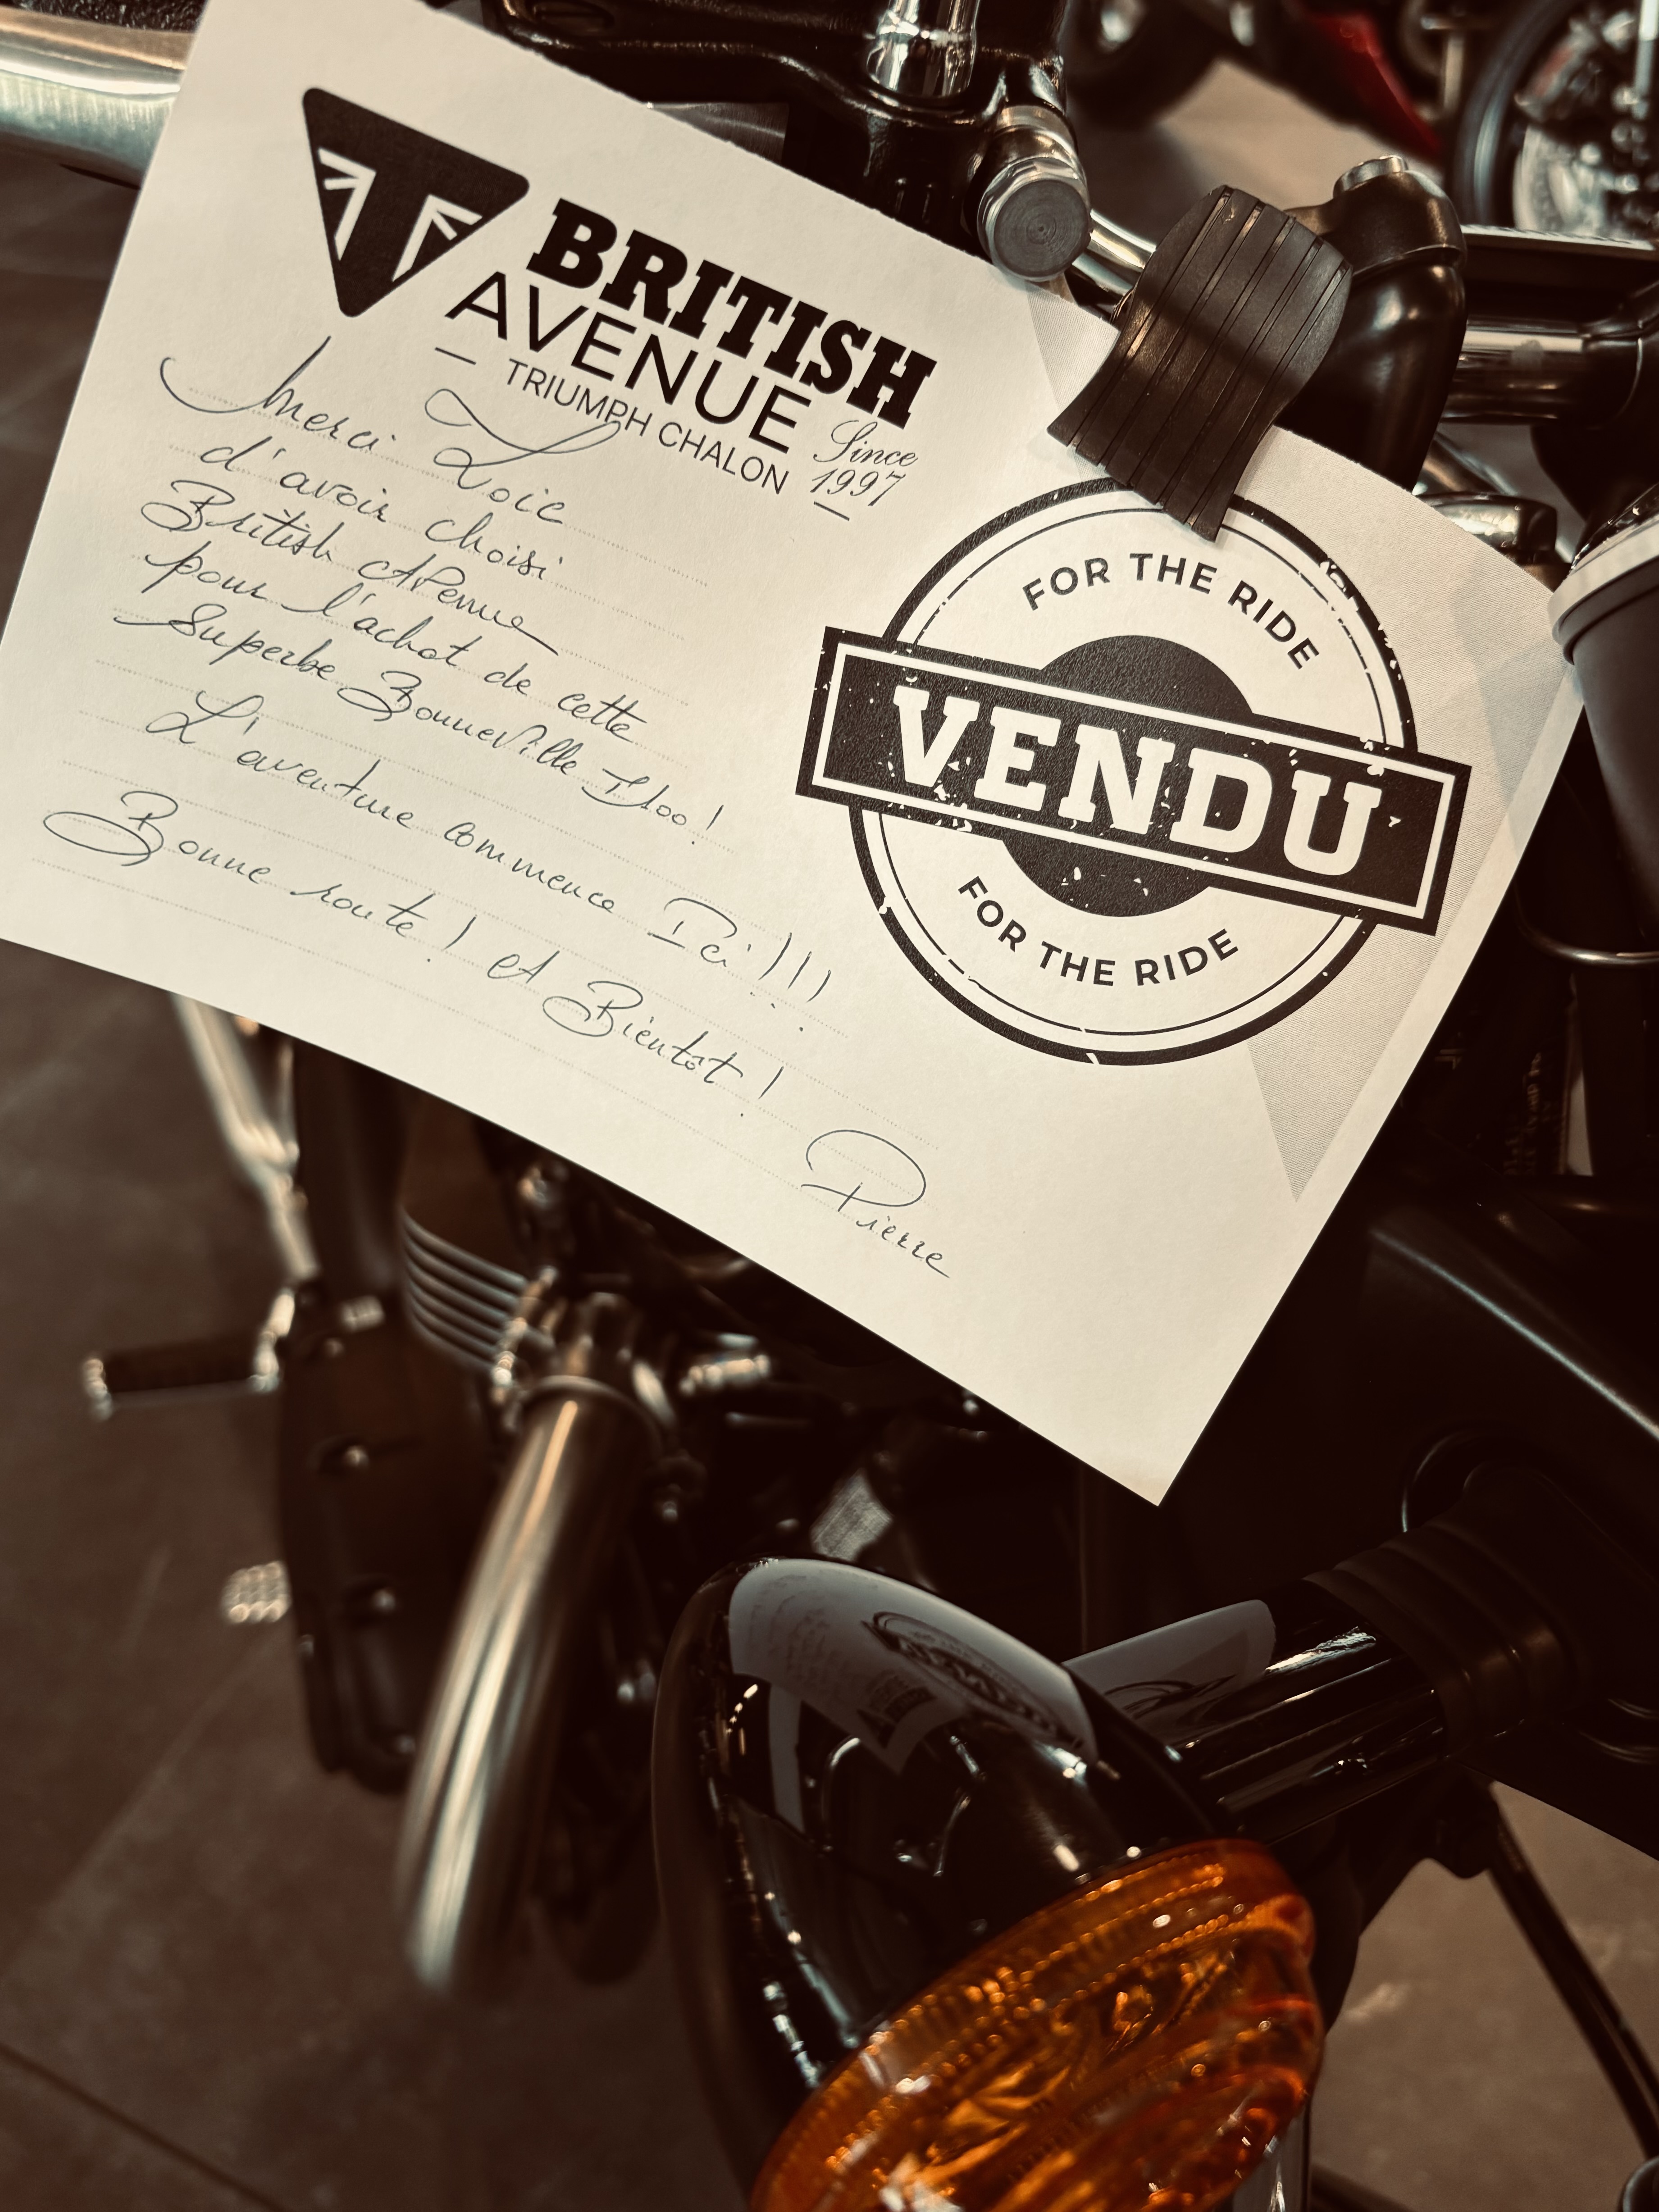 BRITISH
AVENUE
TRIUMPH CHALON
Since
1997
Merci Loïc
d'avoir choisi
British Avenue
pour l'achat de cette
Superbe Bonneville T100!
L'aventure commence Ici!!!
Bonne route! et Bientôt!
Pierre
FOR THE RIDE
VENDU
FOR THE RIDE